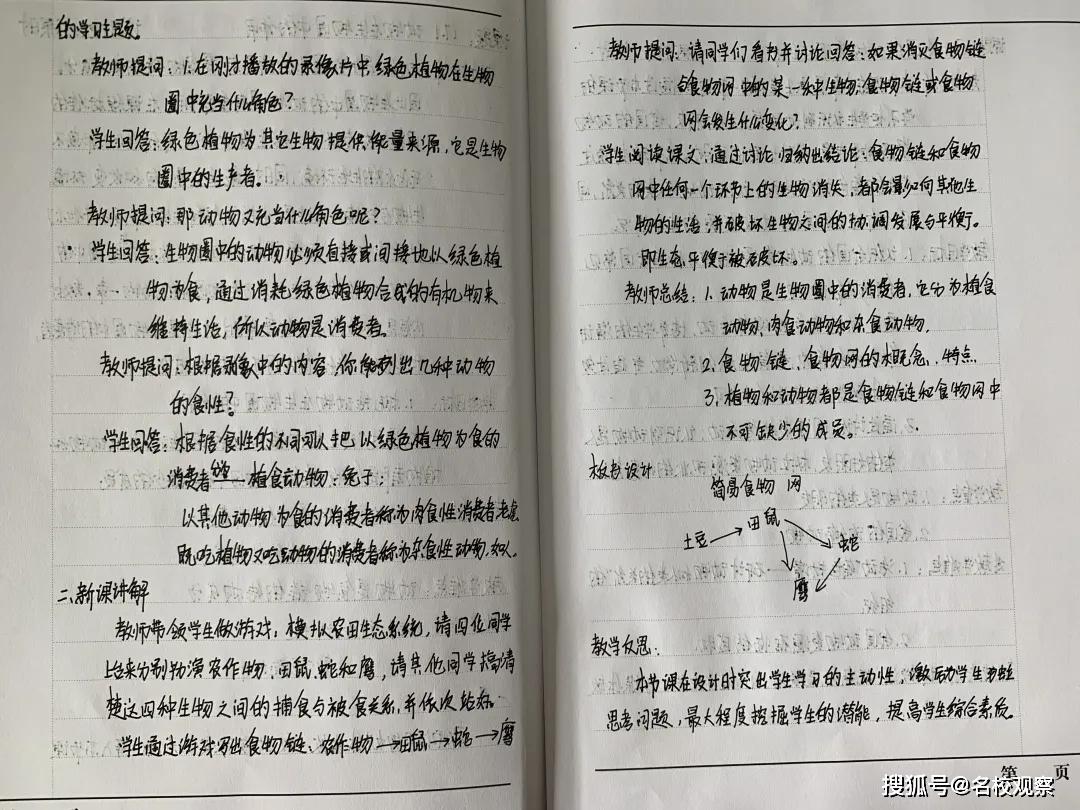 的学习主题。
教师提问：1.在刚才播放的录像片中,绿色植物在生物
圈中充当什么角色？
学生回答：绿色植物为其它生物提供能量来源,它是生物
圈中的生产者。
教师提问：那动物又充当什么角色呢？
学生回答：生物圈中的动物必须直接或间接地以绿色植
物为食，通过消耗绿色植物合成的有机物来
维持生活，所以动物是消费者。
教师提问：根据录像中的内容,你能列出几种动物
的食性？
学生回答：根据食性的不同可以把以绿色植物为食的
消费者 → 植食动物：兔子；
以其他动物为食的消费者称为肉食性消费者:老虎
既吃植物又吃动物的消费者称为杂食性动物,如人。
二、新课讲解
教师带领学生做游戏：模拟农田生态系统，请四位同学
上台来分别扮演农作物、田鼠、蛇和鹰，请其他同学搞清
楚这四种生物之间的捕食与被食关系,并依次站好。
学生通过游戏写出食物链：农作物→田鼠→蛇→鹰
教师提问：请同学们看书并讨论回答：如果消灭食物链
或食物网中的某一种生物,食物链或食物
网会发生什么变化？
学生阅读课文，通过讨论归纳出结论：食物链和食物
网中任何一个环节上的生物消失，都会影响其他生
物的生活，并破坏生物之间的协调发展与平衡。
即生态平衡被破坏。
教师总结：1.动物是生物圈中的消费者，它分为植食
动物、肉食动物和杂食动物。
2.食物链、食物网的概念、特点
3.植物和动物都是食物链和食物网中
不可缺少的成员。
板书设计
简易食物网
土豆→田鼠
蛇
鹰
教学反思：
本节课在设计时突出学生学习的主动性，激励学生
思考问题，最大程度挖掘学生的潜能，提高学生综合素质。
第 页
搜狐号@名校观察